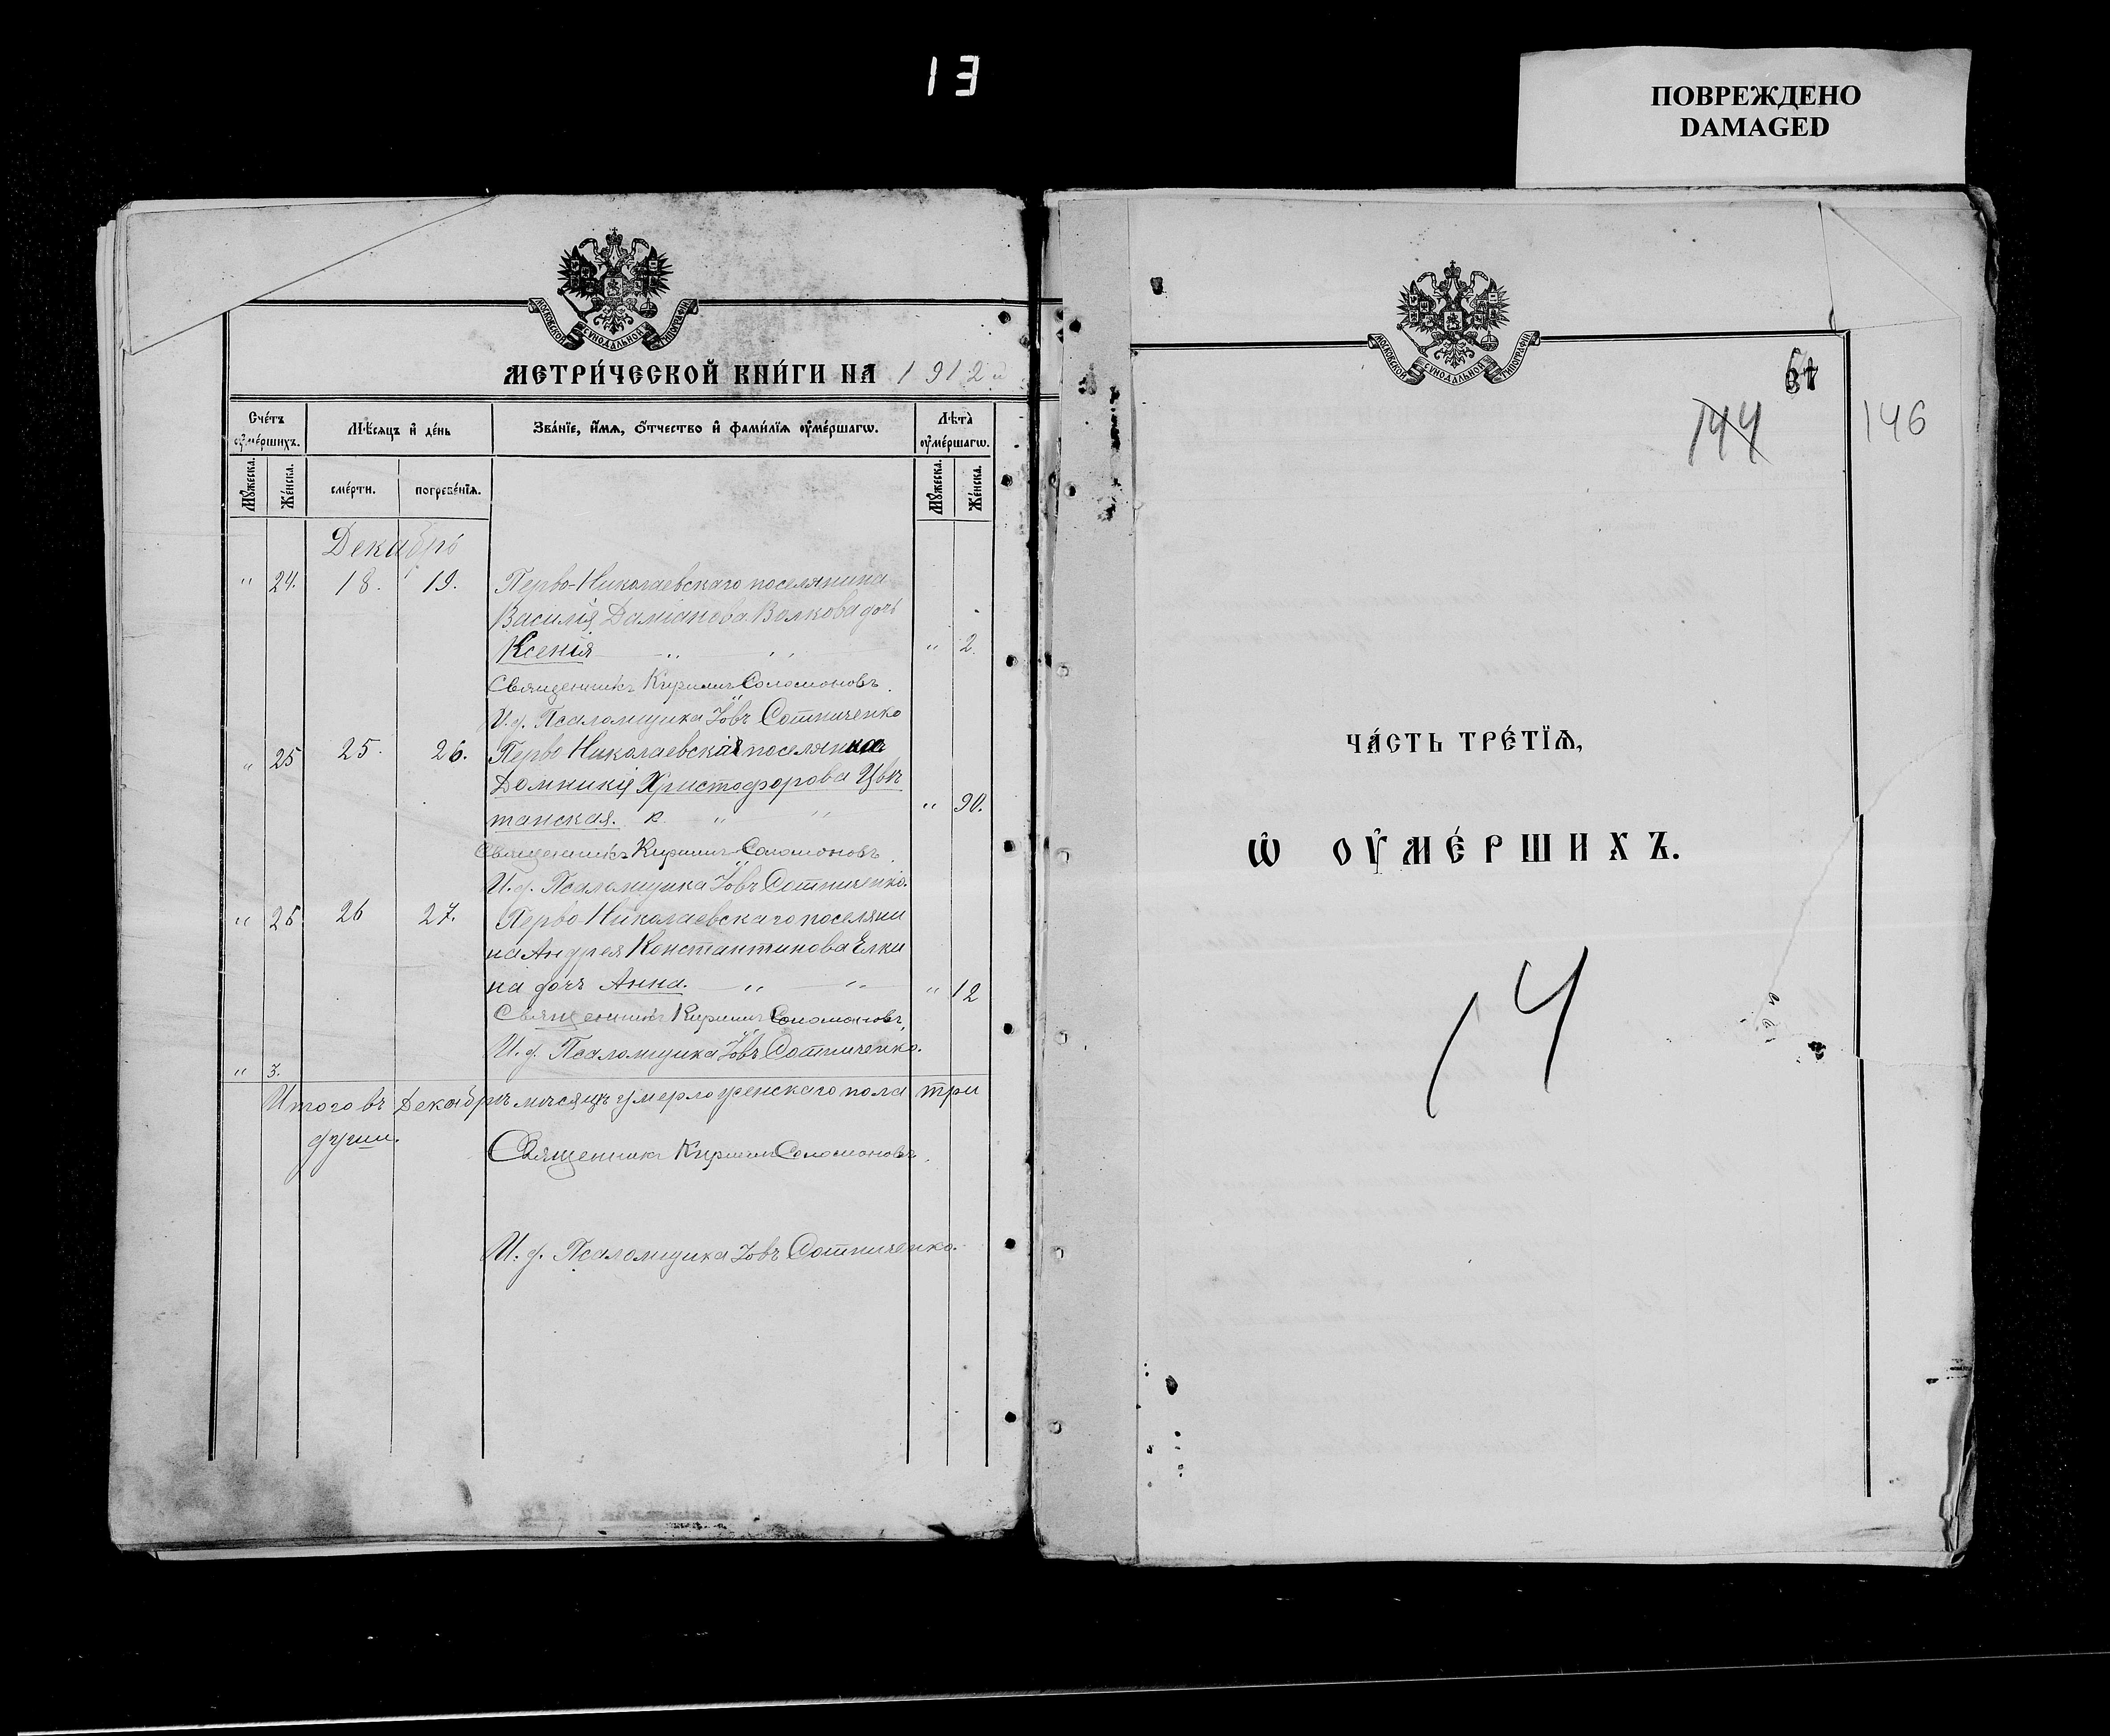 13
ПОВРЕЖДЕНО
DAMAGED
МОСКОВСКОЙ СѴНОДАЛЬНОЙ ТИПОГРАФІИ
МЕТРИ́ЧЕСКОЙ КНИ́ГИ НА 1912 й
Сче́тъ ᲂу҆ме́ршихъ.
Мѣ́сяцъ и҆ де́нь
Зва́нїе, и҆́мѧ, ѻ҆́тчество и҆ фами́лїѧ ᲂу҆ме́ршагѡ.
Лѣ̑та ᲂу҆ме́ршагѡ.
Мꙋ́жеска. Же́нска.
сме́рти. погребе́нїѧ.
Мꙋ́жеска. Же́нска.
Декабрь
" 24. 18. 19. Перво-Николаевскаго поселянина
Василія Даміанова Волкова дочь
Ксенія " " " 2.
Священникъ Кирилл Соломоновъ.
И. д. Псаломщика Іовъ Сотниченко
" 25 25. 26. Перво Николаевская поселянка
Домникія Христофорова Цвѣ
танская. " " " 90.
Священникъ Кирилл Соломоновъ.
И. д. Псаломщика Іовъ Сотниченко.
" 26 26 27. Перво Николаевскаго поселяни
на Андрея Константинова Елки
на дочь Анна. " " " 12
Священникъ Кирилл Соломоновъ,
И. д. Псаломщика Іовъ Сотниченко.
" 3.
Итого въ Декабрѣ мѣсяцѣ умерло женскаго пола три
души.
Священникъ Кирилл Соломоновъ.
И. д. Псаломщика Іовъ Сотниченко.
МОСКОВСКОЙ СѴНОДАЛЬНОЙ ТИПОГРАФІИ
144
146
ЧА́СТЬ ТРЕ́ТЇѦ,
Ѡ҆ ОУ҆МЕ́РШИХЪ.
14